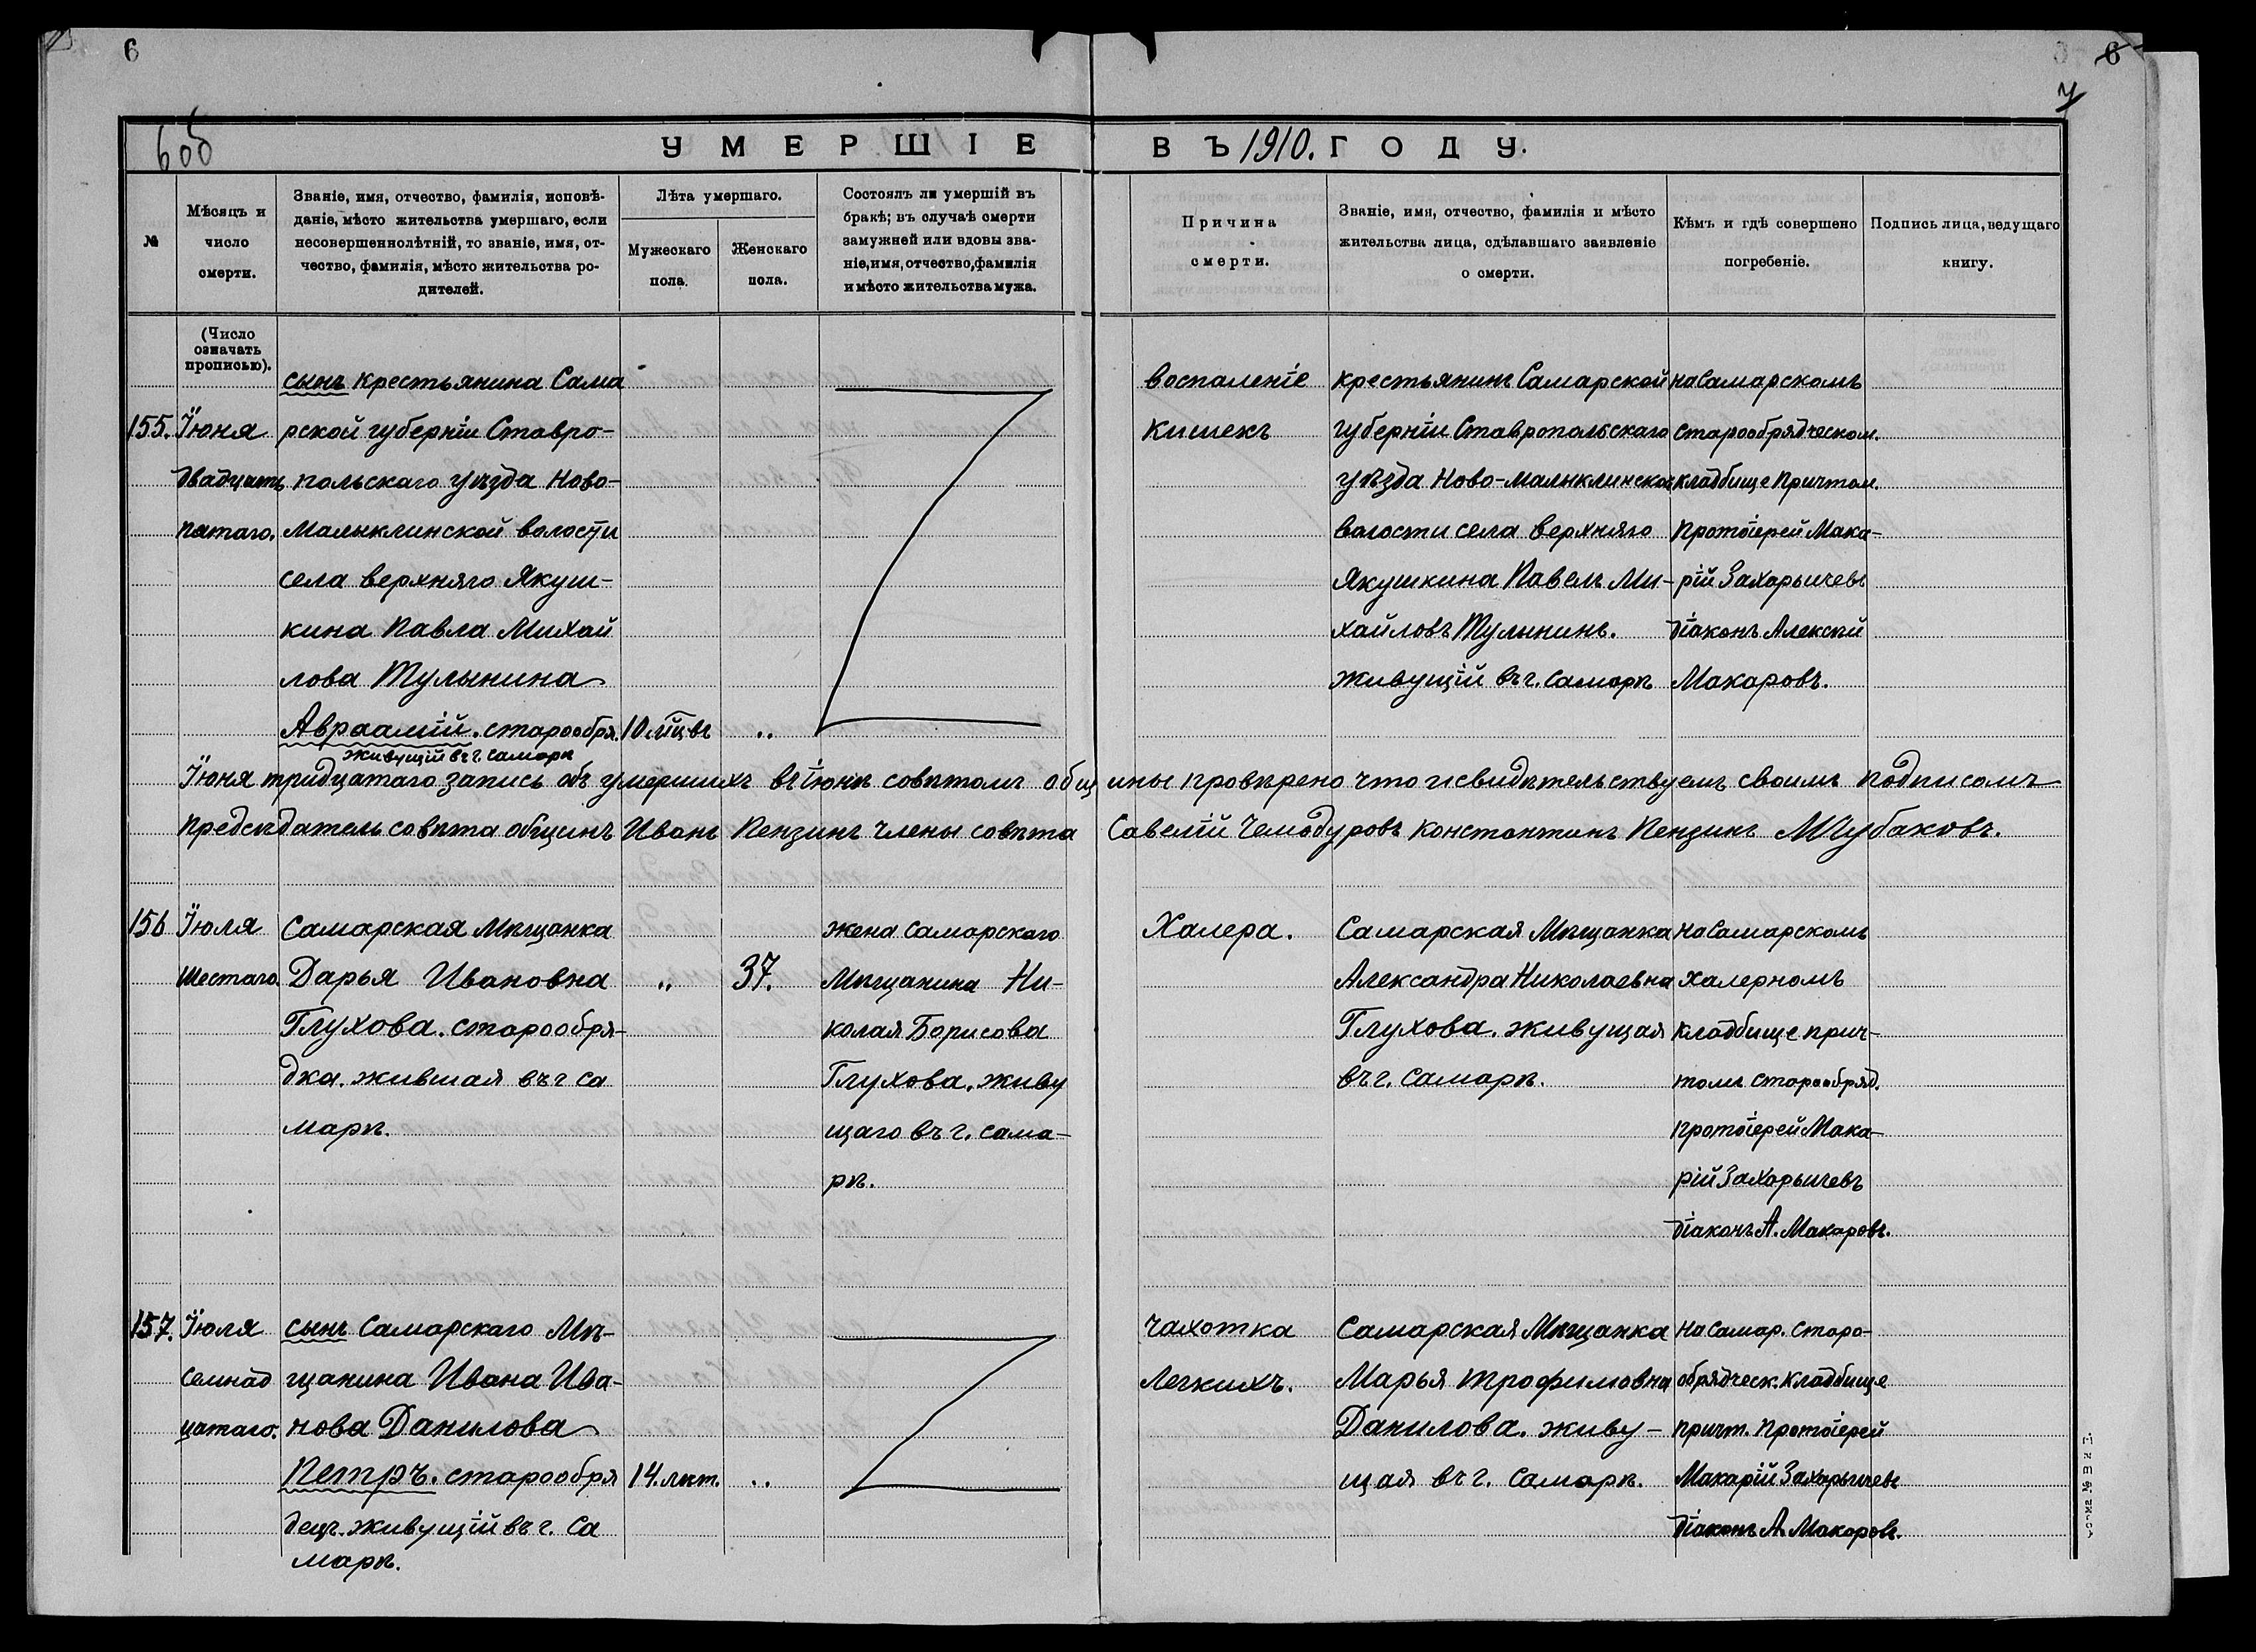 6
6
7
6об
УМЕРШІЕ ВЪ 1910. ГОДУ.
№
Мѣсяцъ и число смерти.
Званіе, имя, отчество, фамилія, исповѣ-
даніе, мѣсто жительства умершаго, если
несовершеннолѣтній, то званіе, имя, от-
чество, фамилія, мѣсто жительства ро-
дителей.
Лѣта умершаго.
Мужескаго пола.
Женскаго пола.
Состоялъ ли умершій въ
бракѣ; въ случаѣ смерти
замужней или вдовы зва-
ніе, имя, отчество, фамилія
и мѣсто жительства мужа.
Причина смерти.
Званіе, имя, отчество, фамилія и мѣсто
жительства лица, сдѣлавшаго заявленіе
о смерти.
Кѣмъ и гдѣ совершено
погребеніе.
Подпись лица, ведущаго
книгу.
(Число
означать
прописью).
155. Іюня
двадцать
пятаго.
сынъ крестьянина Сама
рской губерніи Ставро-
польскаго уѣзда Ново-
Малыклинской волости
села верхняго Якуш-
кина Павла Михай
лова Тулынина
Авраамій. старообря.
живущій въ г. Самарѣ
10 м̃цвъ
„
воспаленіе
кишекъ
крестьянинъ Самарской
губерніи Ставропольскаго
уѣзда Ново-Малыклинской
волости села верхняго
Якушкина Павелъ Ми-
хайловъ Тулынинъ.
живущій въ г. Самарѣ
на Самарскомъ
старообрядческом.
кладбище Причтом.
Протоіерей Мака-
рій Захарычевъ
діаконъ Алексѣй
Макаровъ.
Іюня тридцатаго запись объ умершихъ въ іюнѣ совѣтомъ общины провѣрено что и свидѣтельствуемъ своимъ подписомъ
Предсѣдатель совѣта общинъ Иванъ Пензинъ члены совѣта Савелій Чемодуровъ Константинъ Пензинъ М Шубаковъ.
156 Іюля
шестаго.
Самарская Мѣщанка
Дарья Ивановна
Глухова. старообря-
дка. жившая въ г Са
марѣ.
„
37.
жена Самарскаго
Мѣщанина Ни-
колая Борисова
Глухова. живу
щаго въ г. Сама-
рѣ.
Халера.
Самарская Мѣщанка
Александра Николаевна
Глухова. живущая
въ г. Самарѣ.
на Самарскомъ
халерномъ
кладбище прич-
томъ старообряд.
протоіерей Мака-
рій Захарычевъ
діаконъ А. Макаровъ.
157. Іюля
семнад
цатаго.
сынъ Самарскаго Мѣ-
щанина Ивана Ива-
нова Данилова
Петръ. старообря
децъ. живущій въ г. Са
марѣ.
14. лѣт.
„
Чахотка
Легкихъ.
Самарская Мѣщанка
Марья Трофимовна
Данилова. живу-
щая въ г. Самарѣ.
на Самар. Старо-
обрядческ. кладбище
причт. Протоіерей
Макарій Захарычевъ
діаконъ А. Макаровъ.